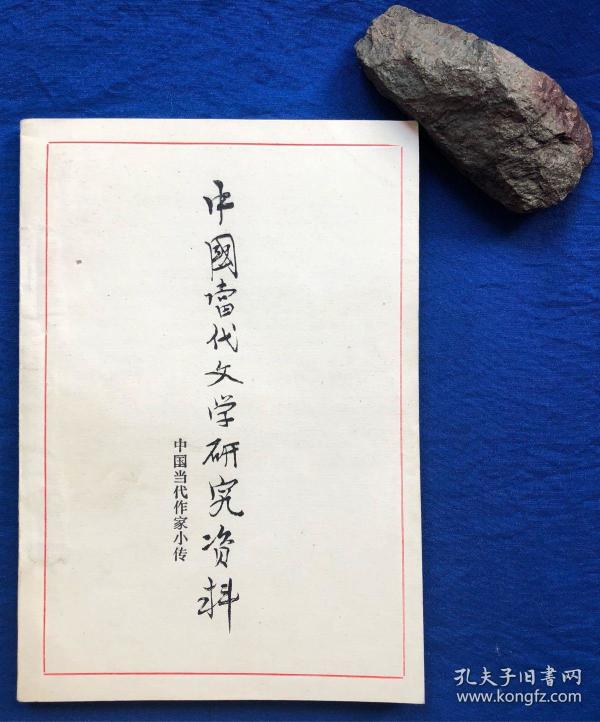 中國當代文学研究资料
中国当代作家小传
孔夫子旧书网
www.kongfz.com